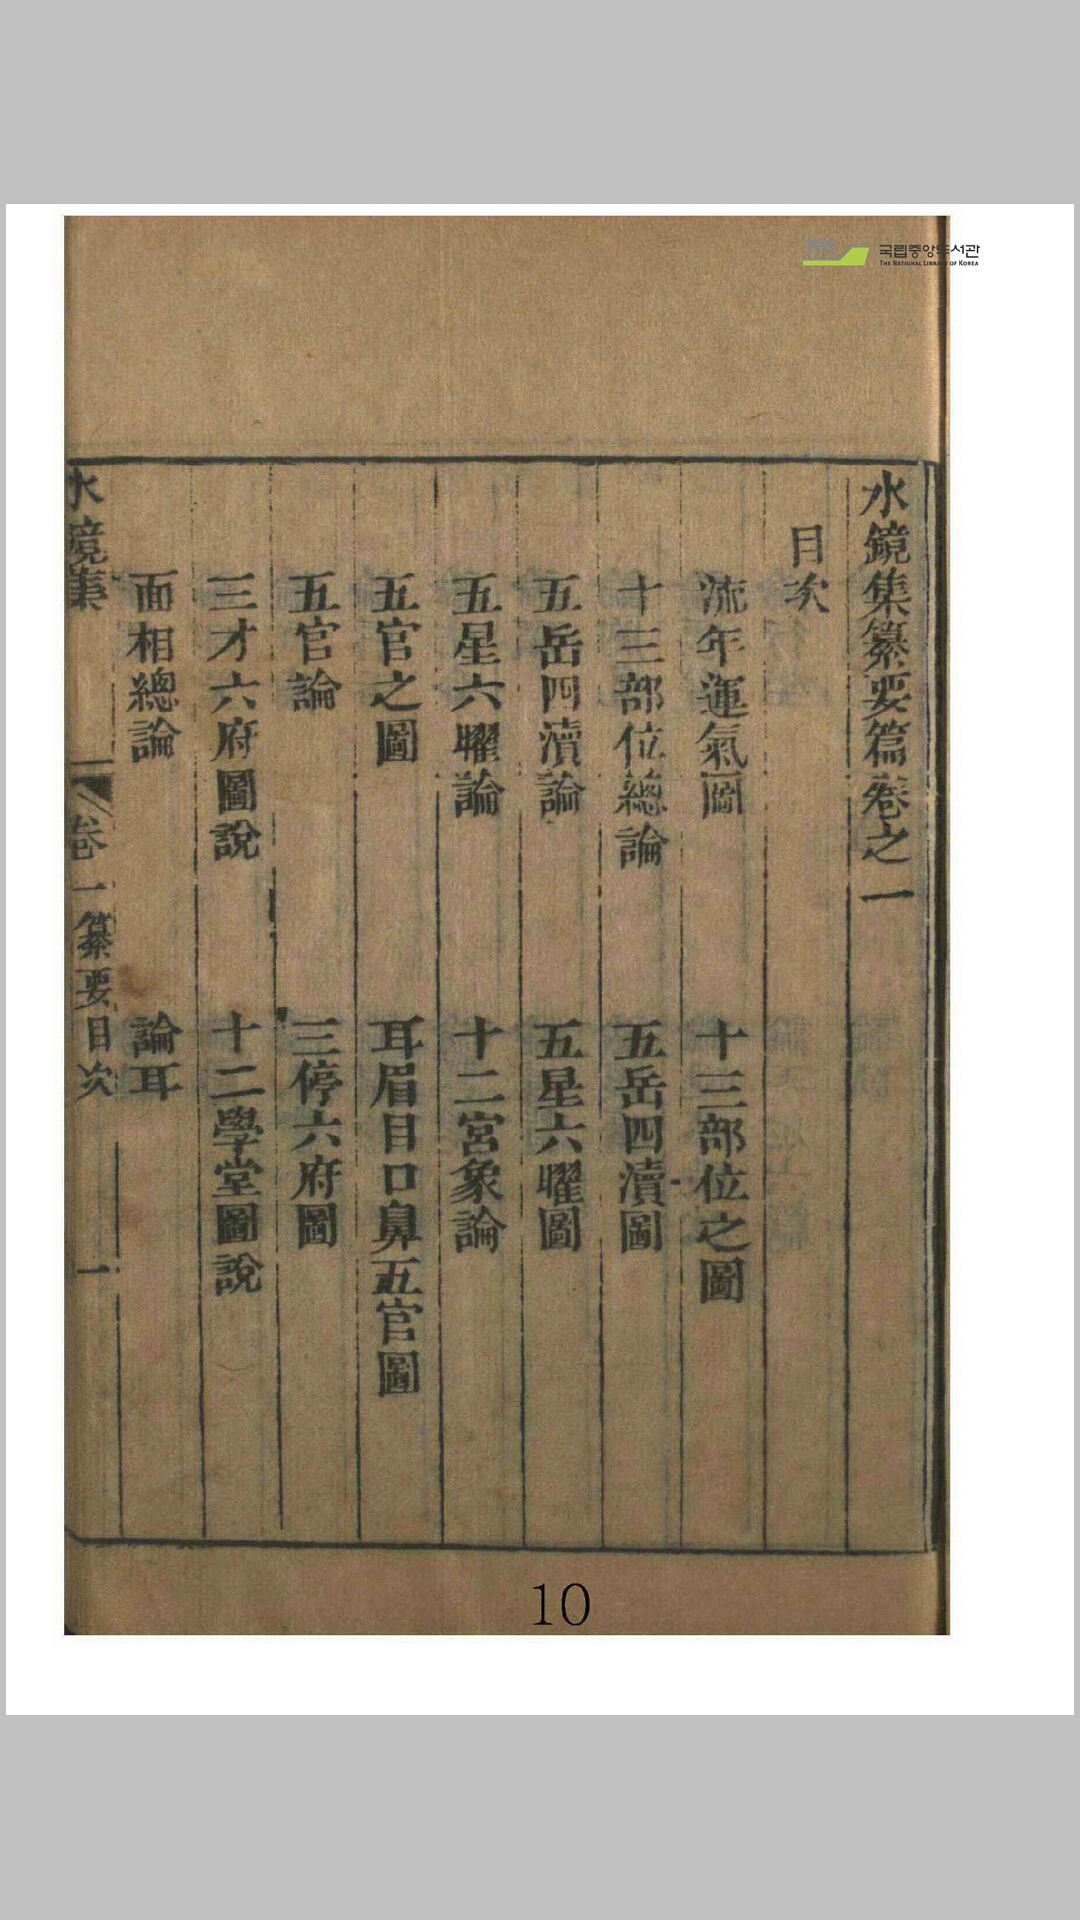 국립중앙도서관
THE NATIONAL LIBRARY OF KOREA
水鏡集纂要篇卷之一
目次
流年運氣圖 十三部位之圖
十三部位總論 五岳四瀆圖
五岳四瀆論 五星六曜圖
五星六曜論 十二宮象論
五官之圖 耳眉目口鼻五官圖
五官論 三停六府圖
三才六府圖說 十二學堂圖說
面相總論 論耳
水鏡集 卷一纂要目次 一
10